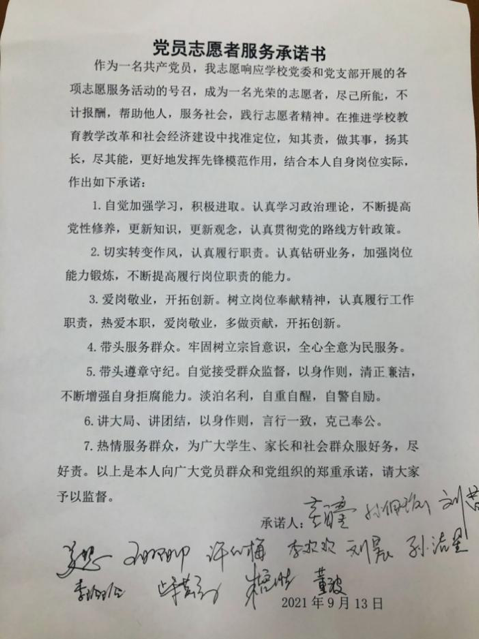 党员志愿者服务承诺书
作为一名共产党员，我志愿响应学校党委和党支部开展的各
项志愿服务活动的号召，成为一名光荣的志愿者，尽己所能，不
计报酬，帮助他人，服务社会，践行志愿者精神。在推进学校教
育教学改革和社会经济建设中找准定位，知其责，做其事，扬其
长，尽其能，更好地发挥先锋模范作用，结合本人自身岗位实际，
作出如下承诺：
1.自觉加强学习，积极进取。认真学习政治理论，不断提高
党性修养，更新知识，更新观念，认真贯彻党的路线方针政策。
2.切实转变作风，认真履行职责。认真钻研业务，加强岗位
能力锻炼，不断提高履行岗位职责的能力。
3.爱岗敬业，开拓创新。树立岗位奉献精神，认真履行工作
职责，热爱本职，爱岗敬业，多做贡献，开拓创新。
4.带头服务群众。牢固树立宗旨意识，全心全意为民服务。
5.带头遵章守纪。自觉接受群众监督，以身作则，清正廉洁，
不断增强自身拒腐能力。淡泊名利，自重自醒，自警自励。
6.讲大局、讲团结，以身作则，言行一致，克己奉公。
7.热情服务群众，为广大学生、家长和社会群众服好务，尽
好责。以上是本人向广大党员群众和党组织的郑重承诺，请大家
予以监督。
承诺人：
刘晨 孙洁星
董波
2021年9月13日